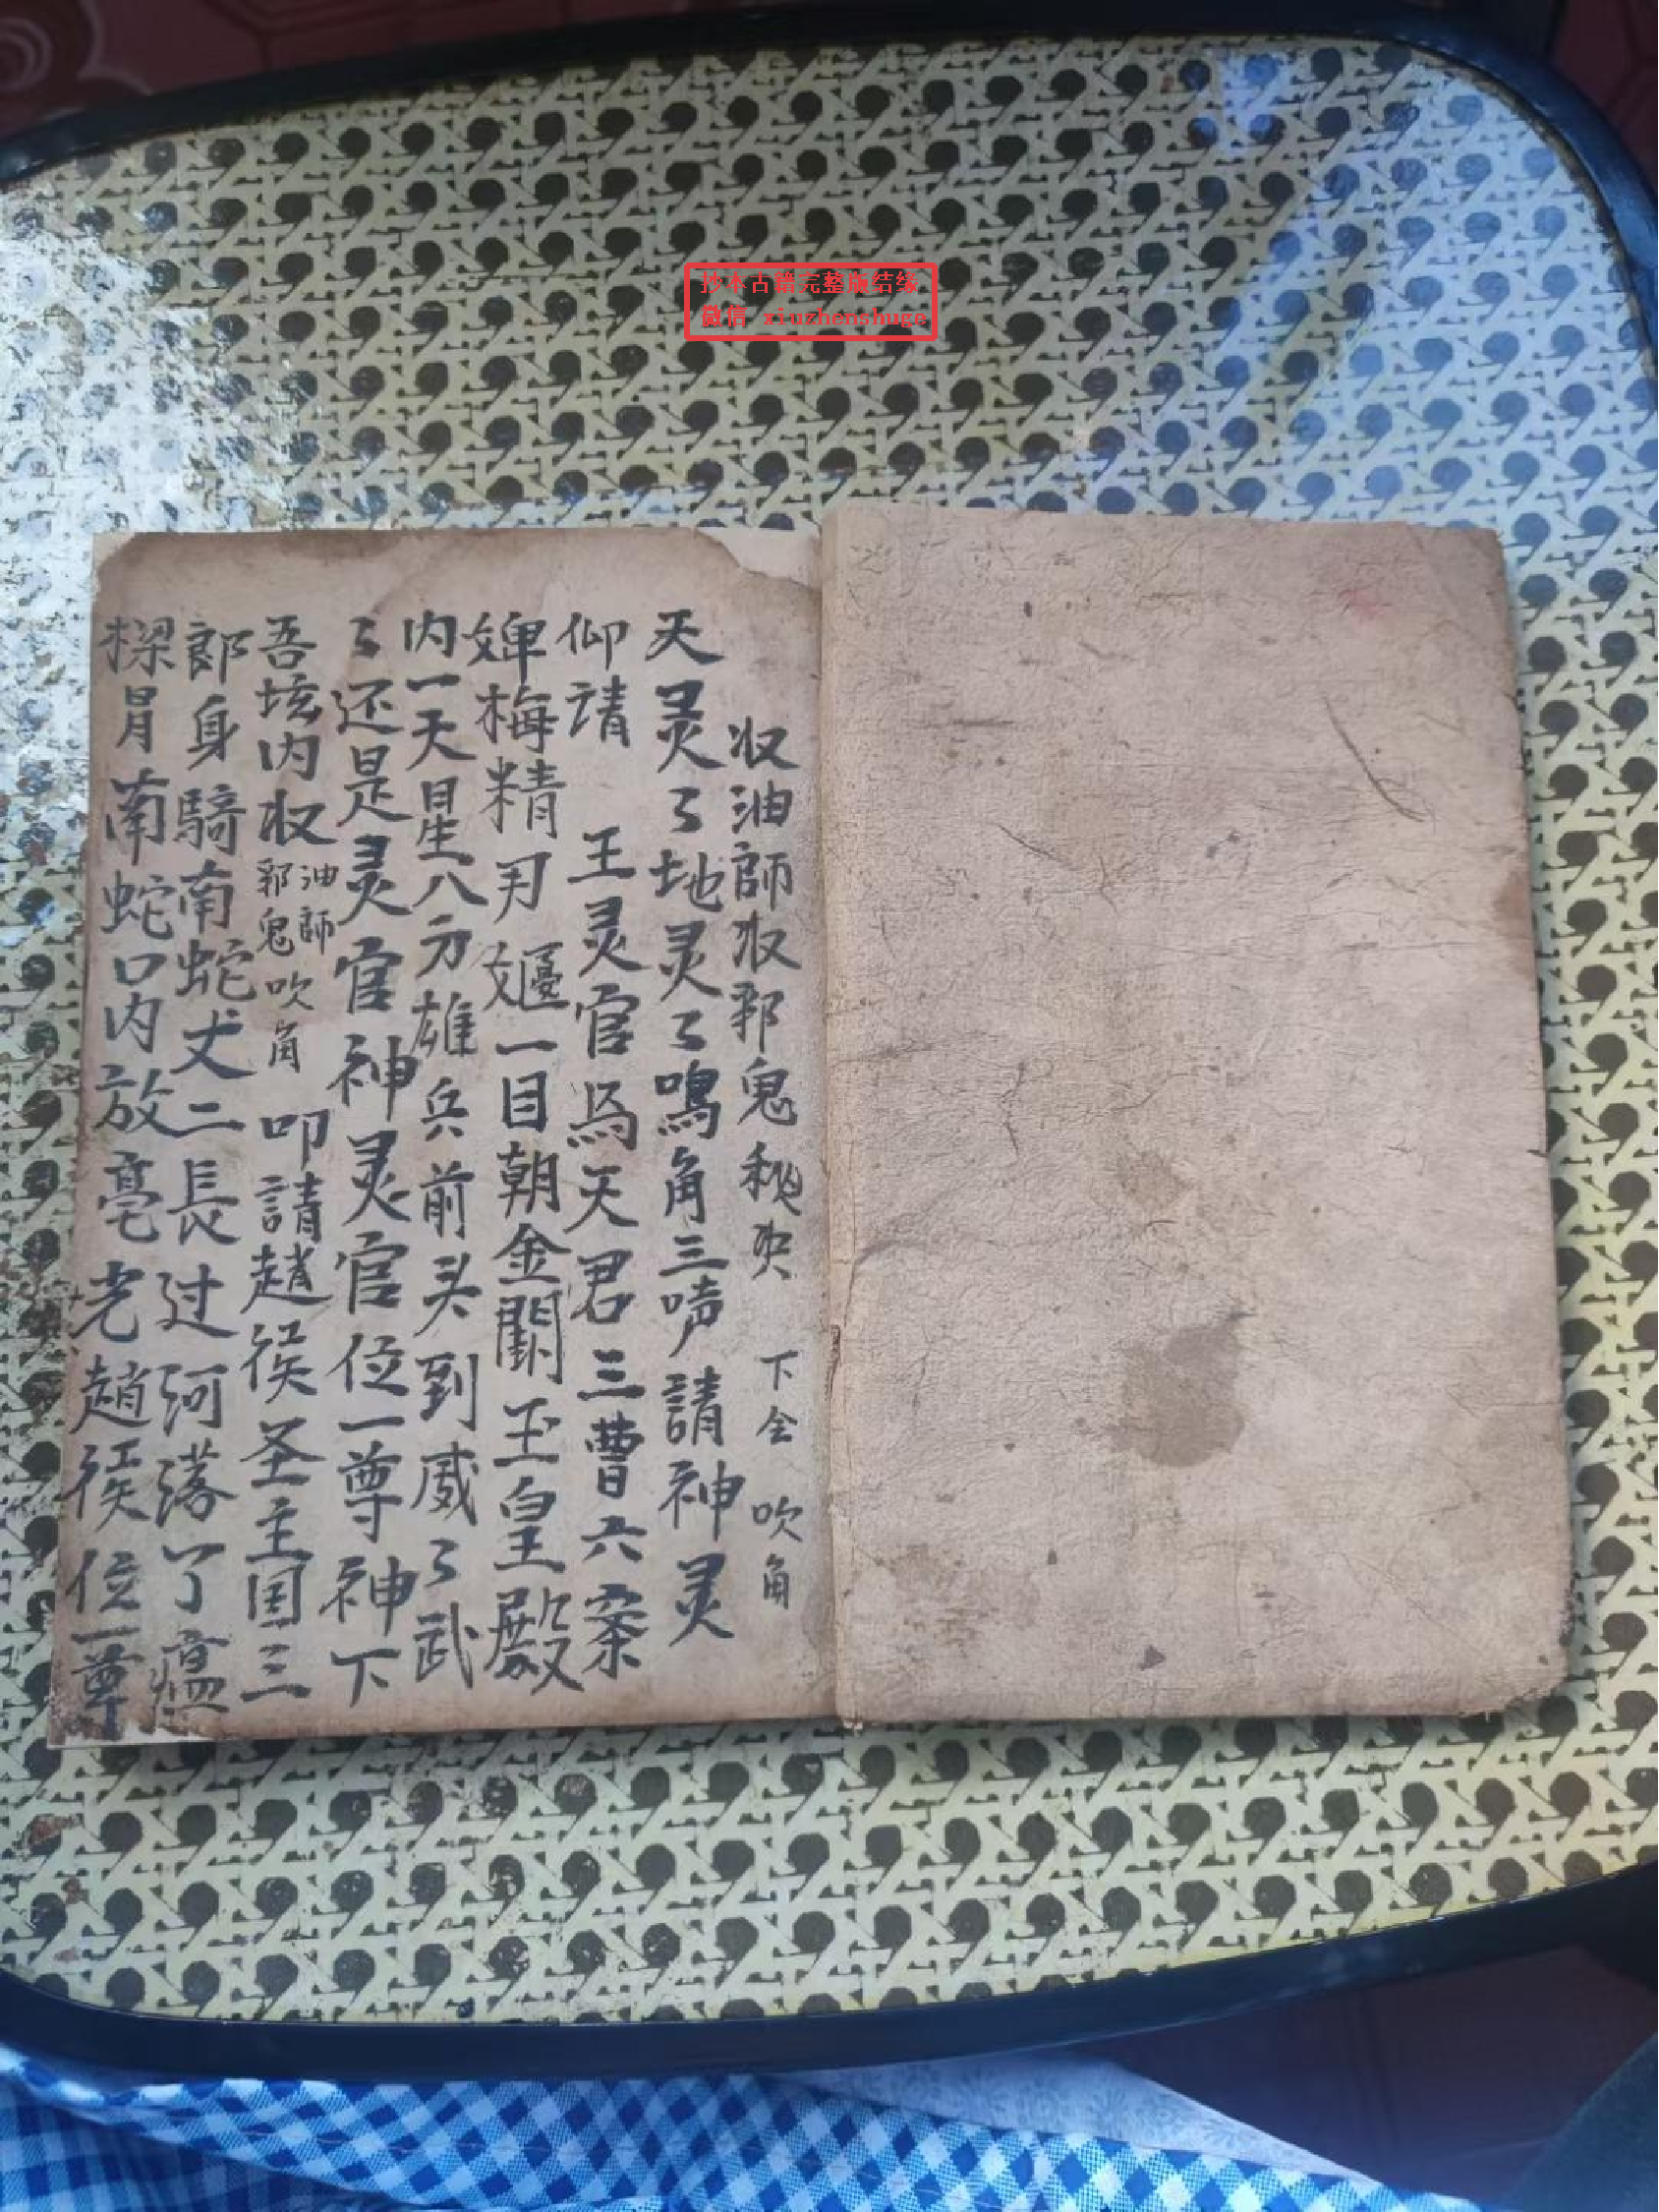 抄本古籍完整版结缘
微信 xiuzhenshuge
收油師收邪鬼秘突 下仝 吹角
天灵々地灵々鳴角三声請神灵
仰請 王灵官馬天君三曹六案
婢梅精 一目朝金闕玉皇殿
内一天星八方雄兵前头到威々武
々还是灵官神灵官位一尊神下
吾坛内收油師邪鬼吹角 叩請趙侯圣主国三
郎身騎南蛇丈二長过河落了瘟
樑胃南蛇口内放毫光趙侯位一尊